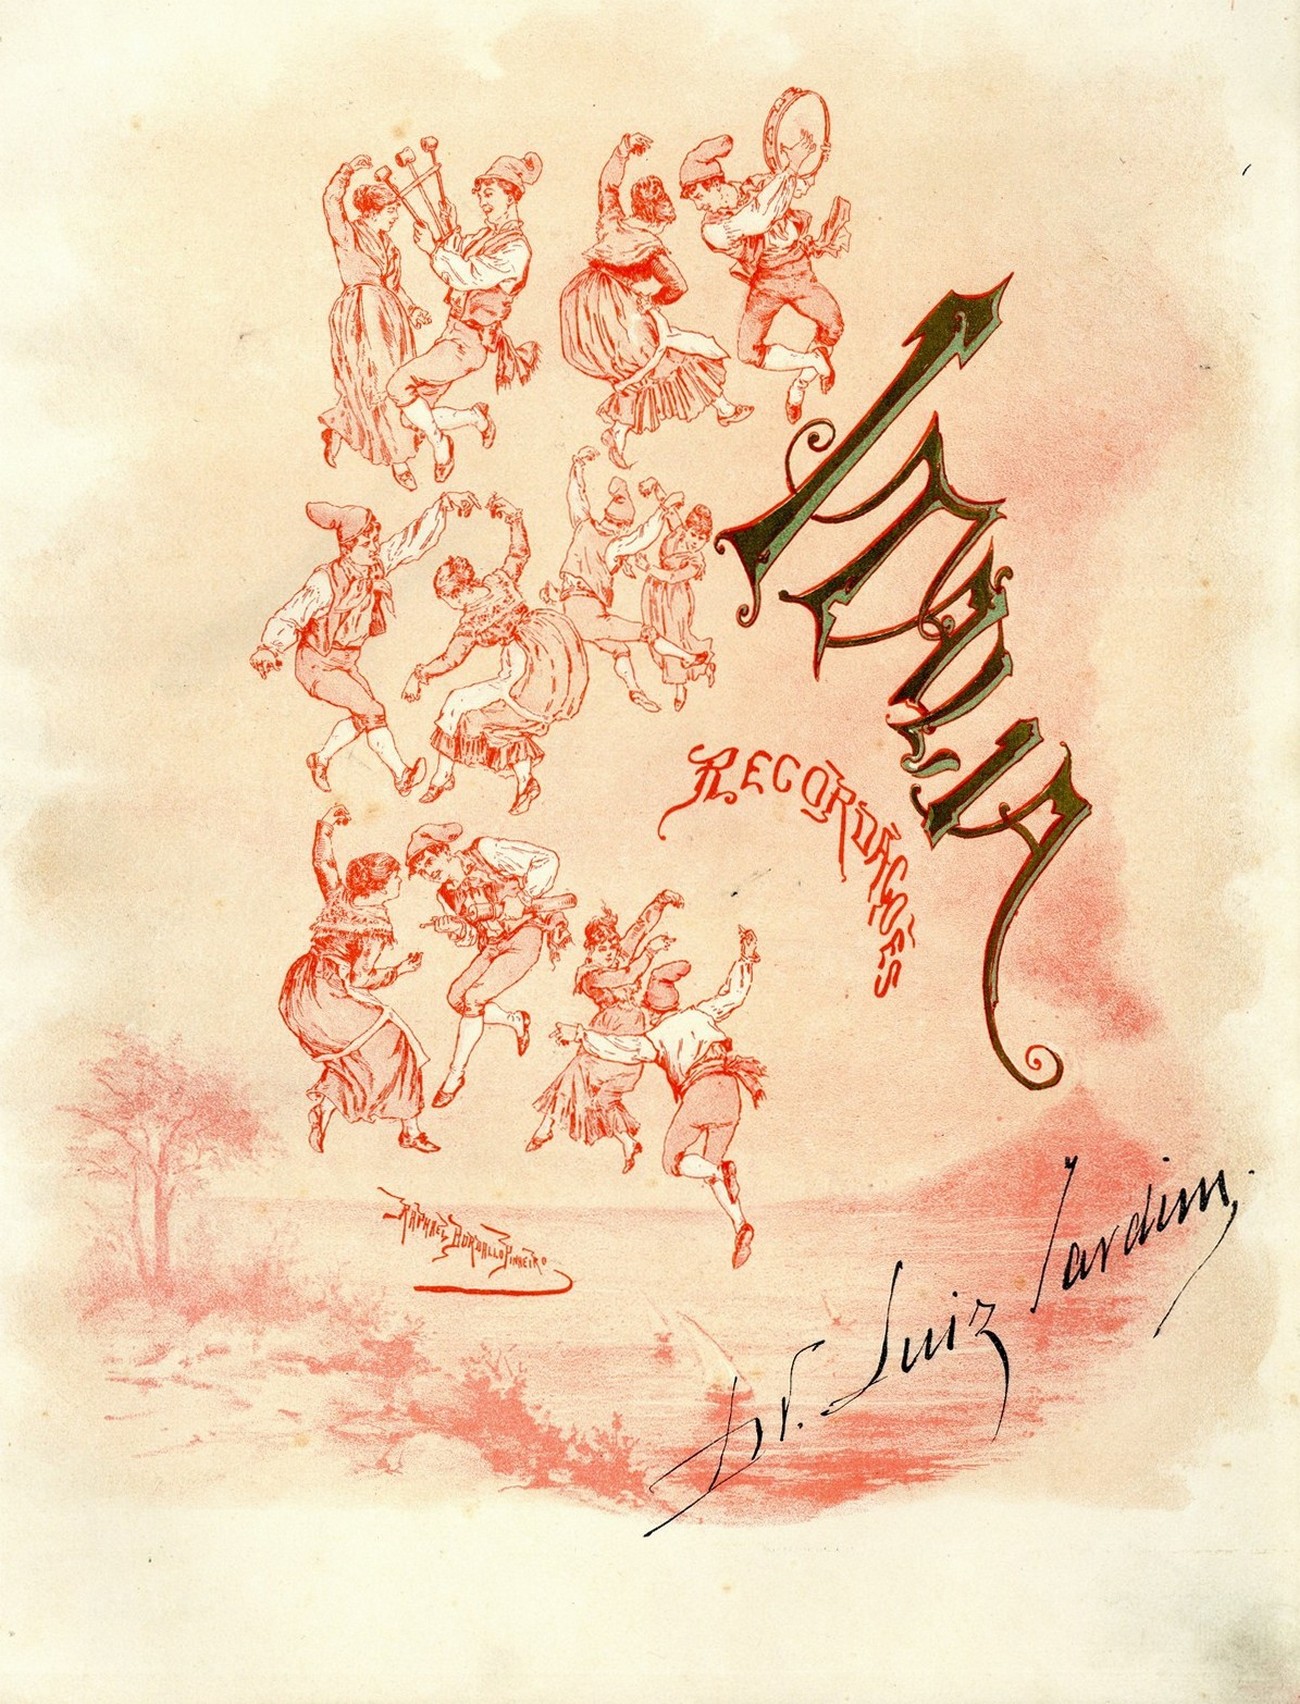 ITALIA
RECORDAÇÕES
RAPHAEL BORDALLO PINHEIRO
Dr. Luiz Jardim.